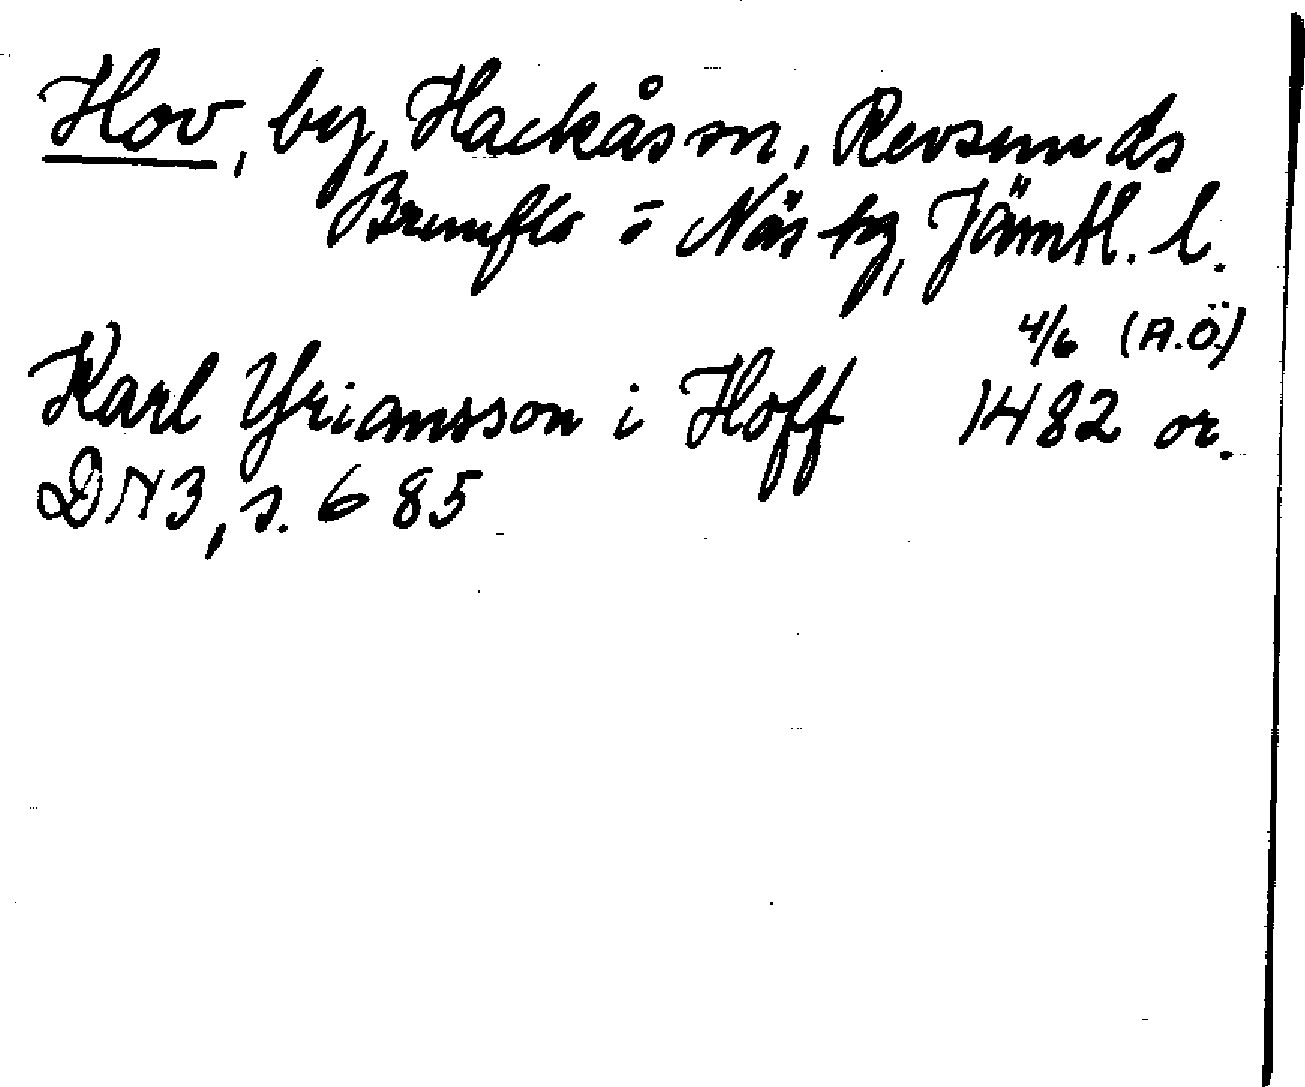 Hov, by, Hackås sn, Revsunds
Brunflo o Näs tg, Jämtl. l.
4/6 (A.Ö.)
Karl Yriansson i Hoff 1482 or.
DN 3, s. 685